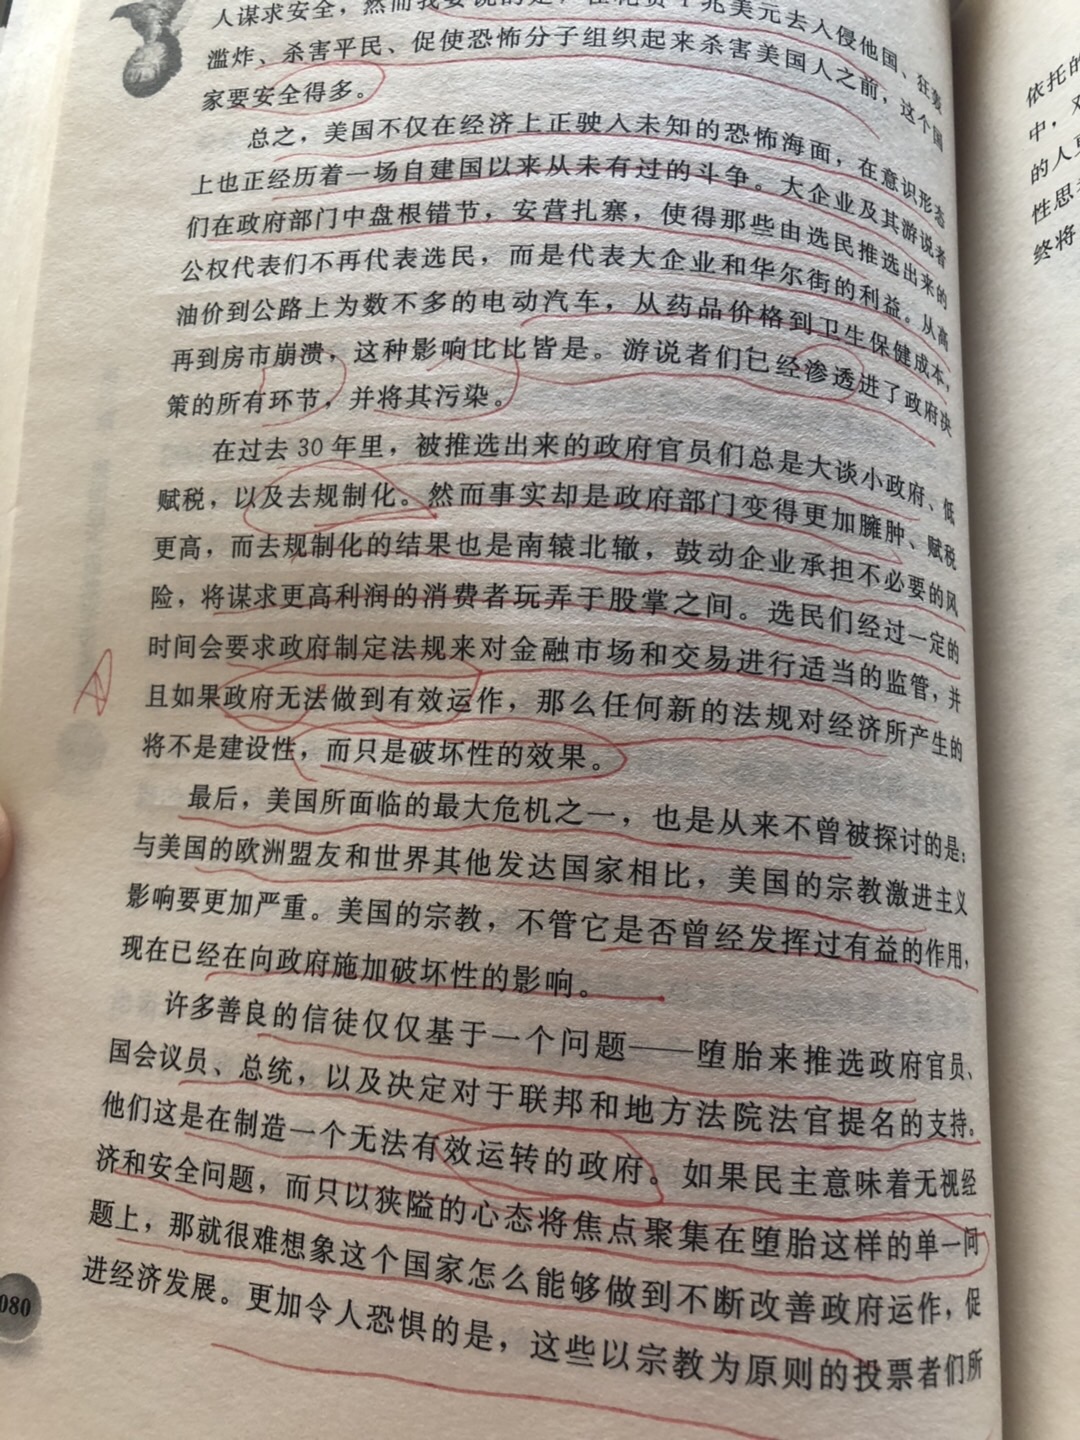 人谋求安全，然而我要说的是，在花费1兆美元去入侵他国、狂轰
滥炸、杀害平民、促使恐怖分子组织起来杀害美国人之前，这个国
家要安全得多。
总之，美国不仅在经济上正驶入未知的恐怖海面，在意识形态
上也正经历着一场自建国以来从未有过的斗争。大企业及其游说者
们在政府部门中盘根错节，安营扎寨，使得那些由选民推选出来的
公权代表们不再代表选民，而是代表大企业和华尔街的利益。从高
油价到公路上为数不多的电动汽车，从药品价格到卫生保健成本，
再到房市崩溃，这种影响比比皆是。游说者们已经渗透进了政府决
策的所有环节，并将其污染。
在过去30年里，被推选出来的政府官员们总是大谈小政府、低
赋税，以及去规制化。然而事实却是政府部门变得更加臃肿、赋税
更高，而去规制化的结果也是南辕北辙，鼓动企业承担不必要的风
险，将谋求更高利润的消费者玩弄于股掌之间。选民们经过一定的
时间会要求政府制定法规来对金融市场和交易进行适当的监管，并
且如果政府无法做到有效运作，那么任何新的法规对经济所产生的
将不是建设性，而只是破坏性的效果。
最后，美国所面临的最大危机之一，也是从来不曾被探讨的是：
与美国的欧洲盟友和世界其他发达国家相比，美国的宗教激进主义
影响要更加严重。美国的宗教，不管它是否曾经发挥过有益的作用，
现在已经在向政府施加破坏性的影响。
许多善良的信徒仅仅基于一个问题——堕胎来推选政府官员、
国会议员、总统，以及决定对于联邦和地方法院法官提名的支持。
他们这是在制造一个无法有效运转的政府。如果民主意味着无视经
济和安全问题，而只以狭隘的心态将焦点聚集在堕胎这样的单一问
题上，那就很难想象这个国家怎么能够做到不断改善政府运作，促
进经济发展。更加令人恐惧的是，这些以宗教为原则的投票者们所
080
依托的
中，
的人
性思
终将